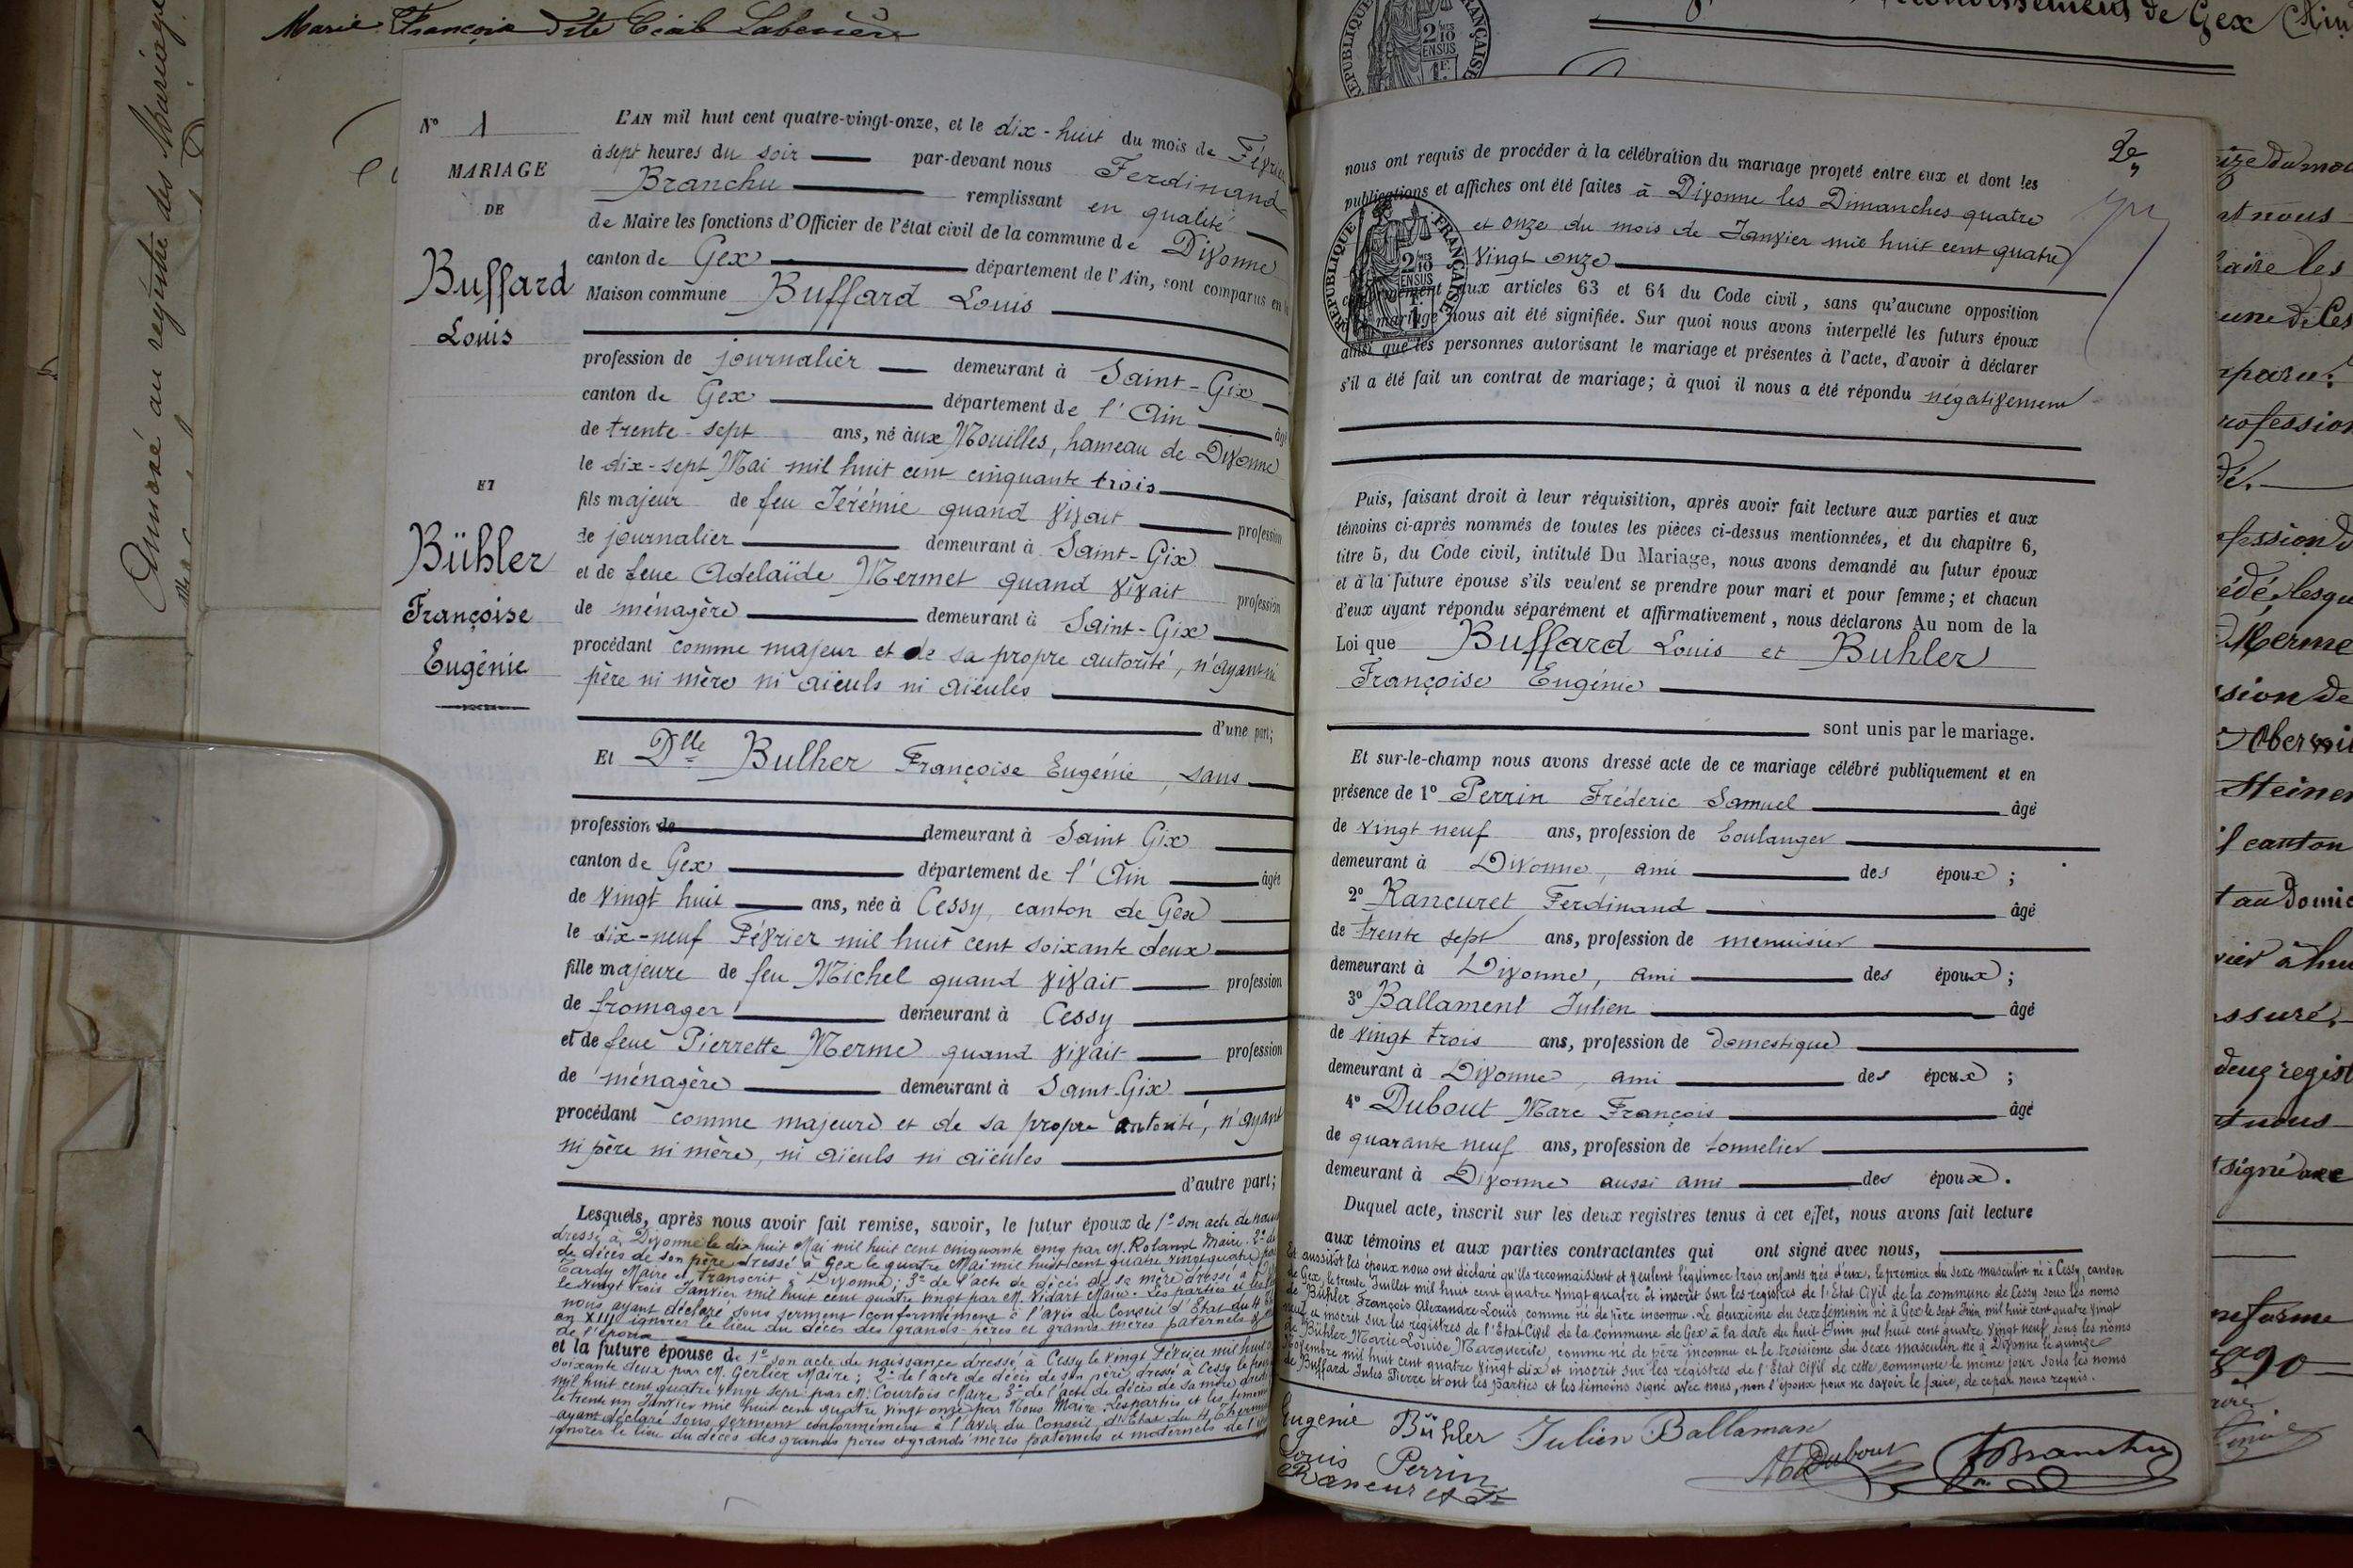 Marie Françoise dite
N° 1
MARIAGE
DE
Buffard
Louis
ET
Bühler
Françoise
Eugénie
L'AN mil huit cent quatre-vingt-onze, et le dix-huit du mois de Février
à sept heures du soir par-devant nous Ferdinand
Branchu remplissant en qualité
de Maire les fonctions d'Officier de l'état civil de la commune de Divonne
canton de Gex département de l'Ain, sont comparus en la
Maison commune Buffard Louis
profession de journalier demeurant à Saint-Gix
canton de Gex département de l'Ain âgé
de trente-sept ans, né aux Mouilles, hameau de Divonne
le dix-sept Mai mil huit cent cinquante trois
fils majeur de feu Jérémie quand vivait profession
de journalier demeurant à Saint-Gix
et de feue Adelaïde Mermet quand vivait profession
de ménagère demeurant à Saint-Gix
procédant comme majeur et de sa propre autorité, n'ayant ni
père ni mère ni aïeuls ni aïeules
d'une part;
Et Dlle Bulher Françoise Eugénie, sans
profession de demeurant à Saint Gix
canton de Gex département de l'Ain âgée
de vingt huit ans, née à Cessy, canton de Gex
le dix-neuf Février mil huit cent soixante deux
fille majeure de feu Michel quand vivait profession
de fromager demeurant à Cessy
et de feue Pierrette Merme quand vivait profession
de ménagère demeurant à Saint-Gix
procédant comme majeure et de sa propre autorité, n'ayant
ni père ni mère, ni aïeuls ni aïeules
d'autre part;
Lesquels, après nous avoir fait remise, savoir, le futur époux de 1° son acte de
dressé à Divonne le dix huit Mai mil huit cent cinquante cinq par M. Roland Maire. 2° de
de décès de son père dressé à Gex le quatre Mai mil huit cent quatre vingt quatre par
Tardy Maire et transcrit à Divonne; 3° de l'acte de décès de sa mère dressé à
le vingt trois Janvier mil huit cent quatre vingt par M. Vidart Maire. Les parties et les
nous ayant déclaré sous serment conformément à l'avis du Conseil d'Etat du 4
an XIII ignorer le lieu du décès des grands-pères et grands mères paternels
de l'époux
et la future épouse de 1° son acte de naissance dressé à Cessy le vingt Février mil huit
soixante deux par M. Gerlier Maire; 2° de l'acte de décès de son père dressé à Cessy le
mil huit cent quatre vingt sept par M. Courtois Maire 3° de l'acte de décès de sa mère
le trente un Janvier mil huit cent quatre vingt onze par Nous Maire. Les parties et les
ayant déclaré sous serment conformément à l'avis du Conseil d'Etat du 4
ignorer le lieu du décès des grands pères et grands mères paternels et maternels de
2e
nous ont requis de procéder à la célébration du mariage projeté entre eux et dont les
publications et affiches ont été faites à Divonne les Dimanches quatre
et onze du mois de Janvier mil huit cent quatre
vingt onze
conformément aux articles 63 et 64 du Code civil, sans qu'aucune opposition
mariage nous ait été signifiée. Sur quoi nous avons interpellé les futurs époux
ainsi que les personnes autorisant le mariage et présentes à l'acte, d'avoir à déclarer
s'il a été fait un contrat de mariage; à quoi il nous a été répondu négativement
Puis, faisant droit à leur réquisition, après avoir fait lecture aux parties et aux
témoins ci-après nommés de toutes les pièces ci-dessus mentionnées, et du chapitre 6,
titre 5, du Code civil, intitulé Du Mariage, nous avons demandé au futur époux
et à la future épouse s'ils veulent se prendre pour mari et pour femme; et chacun
d'eux ayant répondu séparément et affirmativement, nous déclarons Au nom de la
Loi que Buffard Louis et Buhler
Françoise Eugénie
sont unis par le mariage.
Et sur-le-champ nous avons dressé acte de ce mariage célébré publiquement et en
présence de 1° Perrin Fréderic Samuel âgé
de vingt neuf ans, profession de boulanger
demeurant à Divonne, ami des époux;
2° Rancuret Ferdinand âgé
de trente sept ans, profession de menuisier
demeurant à Divonne, ami des époux;
3° Ballament Julien âgé
de vingt trois ans, profession de domestique
demeurant à Divonne, ami des époux;
4° Dubout Marc François âgé
de quarante neuf ans, profession de tonnelier
demeurant à Divonne aussi ami des époux.
Duquel acte, inscrit sur les deux registres tenus à cet effet, nous avons fait lecture
aux témoins et aux parties contractantes qui ont signé avec nous,
Et aussitôt les époux nous ont déclaré qu'ils reconnaissent et veulent légitimer trois enfants nés d'eux. le premier du sexe masculin né à Cessy, canton
de Gex, le trente Juillet mil huit cent quatre vingt quatre et inscrit sur les registres de l'Etat Civil de la commune de Cessy sous les noms
de Bühler François Alexandre Louis comme né de père inconnu. Le deuxième du sexe féminin né à Gex le sept Juin mil huit cent quatre vingt
neuf et inscrit sur les registres de l'Etat Civil de la commune de Gex à la date du huit Juin mil huit cent quatre vingt neuf sous les noms
de Bühler Marie Louise Marguerite, comme né de père inconnu et le troisième du sexe masculin né à Divonne le quinze
Novembre mil huit cent quatre vingt dix et inscrit sur les registres de l'Etat Civil de cette commune le même jour sous les noms
de Buffard Jules Pierre et ont les parties et les témoins signé avec nous, non l'époux pour ne savoir le faire, de ce par nous requis.
Eugenie Bühler Julien Ballaman
Louis Perrin Dubout FBranchu
Rancuret F
REPUBLIQUE FRANÇAISE
2/10 EN SUS
1 F.